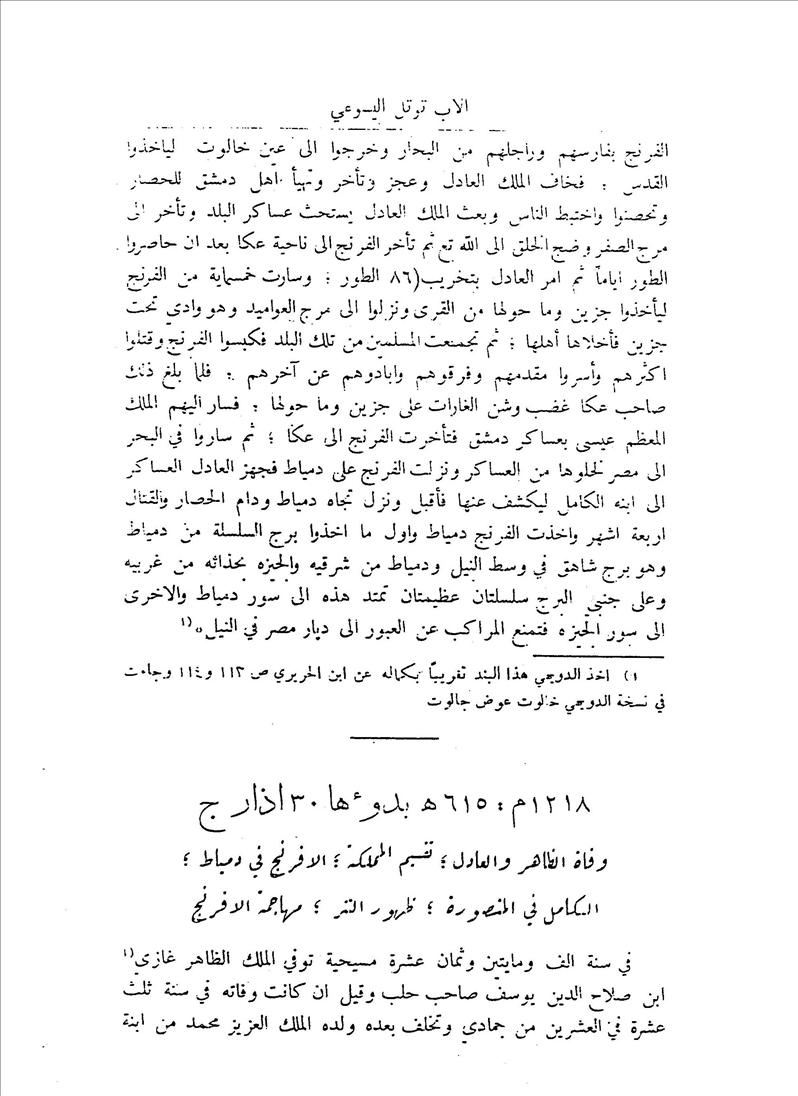 الاب توتل اليسوعي
الفرنج بفارسهم وراجلهم من البحار وخرجوا الى عين خالوت لياخذوا
القدس : فخاف الملك العادل وعجز وتأخر وتهيأ اهل دمشق للحصار
وتحصنوا واختبط الناس وبعث الملك العادل يستحث عساكر البلد وتأخر الى
مرج الصفر وضج الخلق الى الله تع ثم تأخر الفرنج الى ناحية عكا بعد ان حاصروا
الطور اياماً ثم امر العادل بتخريب(٨٦ الطور : وسارت خمسماية من الفرنج
ليأخذوا جزين وما حولها من القرى ونزلوا الى مرج العواميد وهو وادي تحت
جزين فأخلاها أهلها ؛ ثم تجمعت المسلمين من تلك البلد فكبسوا الفرنج وقتلوا
اكثرهم وأسروا مقدمهم وفرقوهم وابادوهم عن آخرهم : فلما بلغ ذلك
صاحب عكا غضب وشن الغارات على جزين وما حولها : فسار اليهم الملك
المعظم عيسى بعساكر دمشق فتأخرت الفرنج الى عكا ؛ ثم ساروا في البحر
الى مصر لخلوها من العساكر ونزلت الفرنج على دمياط فجهز العادل العساكر
الى ابنه الكامل ليكشف عنها فأقبل ونزل تجاه دمياط ودام الحصار والقتال
اربعة اشهر واخذت الفرنج دمياط واول ما اخذوا برج السلسلة من دمياط
وهو برج شاهق في وسط النيل ودمياط من شرقيه والجيزه بحذائه من غربيه
وعلى جنبي البرج سلسلتان عظيمتان تمتد هذه الى سور دمياط والاخرى
الى سور الجيزه فتمنع المراكب عن العبور الى ديار مصر في النيل»(١
١) اخذ الدويهي هذا البند تقريباً بكماله عن ابن الحريري ص ١١٣ و١١٤ وجاءت
في نسخة الدويهي خالوت عوض جالوت
١٢١٨م : ٦١٥ﻫ بدوءها ٣٠ اذار ج
وفاة الظاهر والعادل ؛ تقسيم المملكة ؛ الافرنج في دمياط ؛
الكامل في المنصورة ؛ ظهور التتر ؛ مهاجمة الافرنج
في سنة الف ومايتين وثمان عشرة مسيحية توفي الملك الظاهر غازي(١
ابن صلاح الدين يوسف صاحب حلب وقيل ان كانت وفاته في سنة ثلث
عشرة في العشرين من جمادي وتخلف بعده ولده الملك العزيز محمد من ابنة